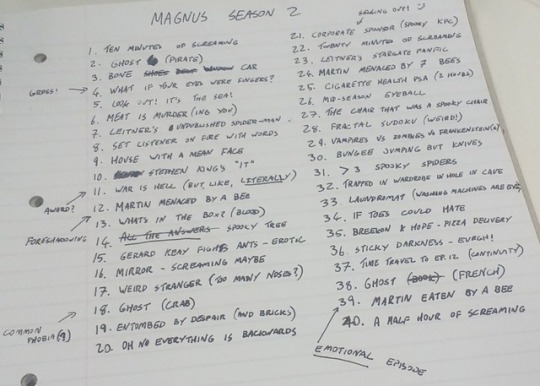 MAGNUS SEASON 2
1. TEN MINUTES OF SCREAMING
2. GHOST (PIRATE)
3. BONE CAR
GROSS!
4. WHAT IF YOUR EYES WERE FINGERS?
5. LOOK OUT! IT'S THE SEA!
6. MEAT IS MURDER (ING YOU)
7. LEITNER'S UNPUBLISHED SPIDER-MAN
8. SET LISTENER ON FIRE WITH WORDS
9. HOUSE WITH A MEAN FACE
10. STEPHEN KING'S "IT"
11. WAR IS HELL (BUT, LIKE, LITERALLY)
AWARD?
12. MARTIN MENACED BY A BEE
FORESHADOWING
13. WHATS IN THE BOX? (BLOOD)
14. ALL THE ANSWERS SPOOKY TREE
15. GERARD KEAY FIGHTS ANTS - EROTIC
16. MIRROR - SCREAMING MAYBE
17. WEIRD STRANGER (TOO MANY NOSES?)
18. GHOST (CRAB)
COMMON PHOBIA(?)
19. ENTOMBED BY DESPAIR (AND BRICKS)
20. OH NO EVERYTHING IS BACKWARDS
SELLING OUT!
21. CORPORATE SPONSOR (SPOOKY KFC)
22. TWENTY MINUTES OF SCREAMING
23. LEITNER'S STARGATE FANFIC
24. MARTIN MENACED BY 7 BEES
25. CIGARETTE HEALTH PSA (2 HOURS)
26. MID-SEASON EYEBALL
27. THE CHAIR THAT WAS A SPOOKY CHAIR
28. FRACTAL SUDOKU (WEIRD!)
29. VAMPIRES VS ZOMBIES VS FRANKENSTEIN(S)
30. BUNGEE JUMPING BUT KNIVES
31. >3 SPOOKY SPIDERS
32. TRAPPED IN WARDROBE IN HOLE IN CAVE
33. LAUNDROMAT (WASHING MACHINES ARE EVIL)
34. IF TOES COULD HATE
35. BREEKON & HOPE - PIZZA DELIVERY
36. STICKY DARKNESS - EURGH!
37. TIME TRAVEL TO EP. 12 (CONTINUITY)
38. GHOST (BOOK) (FRENCH)
39. MARTIN EATEN BY A BEE
40. A HALF HOUR OF SCREAMING
EMOTIONAL EPISODE